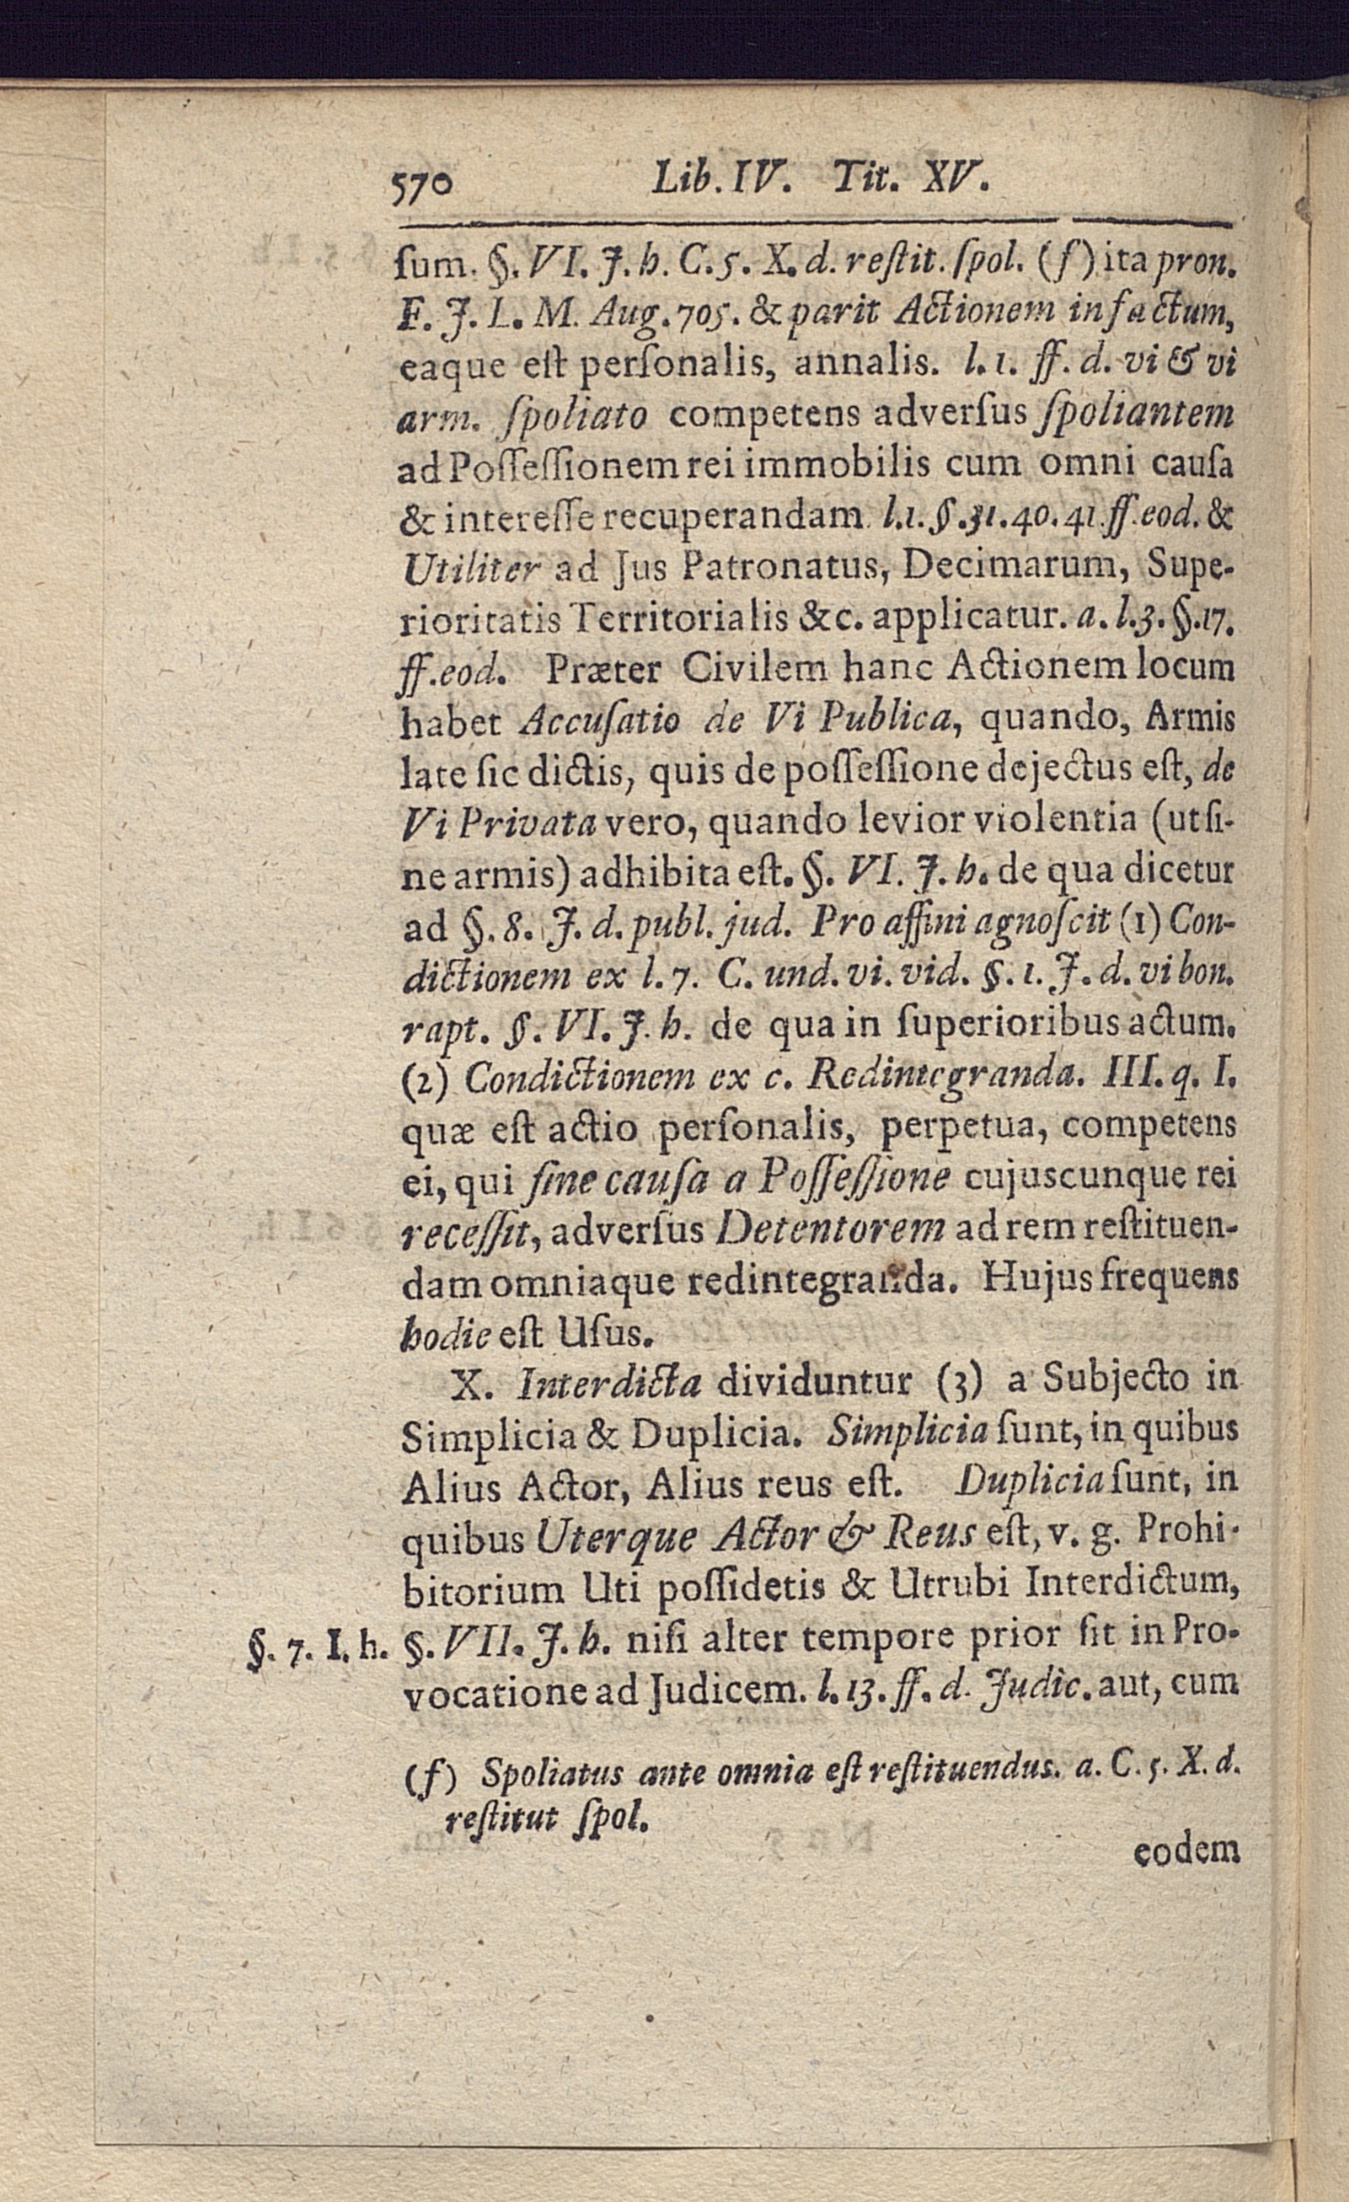 570 Lib. IV. Tit. XV.
ſum. §. VI. J. h. C. 5. X. d. reſtit. ſpol. (f) ita pron.
F. J. L. M. Aug. 705. & parit Actionem in factum,
eaque eſt perſonalis, annalis. l. 1. ff. d. vi & vi
arm. ſpoliato competens adverſus ſpoliantem
ad Poſſeſſionem rei immobilis cum omni cauſa
& intereſſe recuperandam. l. 1. §. 31. 40. 41. ff. eod. &
Utiliter ad Jus Patronatus, Decimarum, Supe-
rioritatis Territorialis &c. applicatur. a. l. 3. §. 17.
ff. eod. Præter Civilem hanc Actionem locum
habet Accuſatio de Vi Publica, quando, Armis
late ſic dictis, quis de poſſeſſione dejectus eſt, de
Vi Privata vero, quando levior violentia (ut ſi-
ne armis) adhibita eſt. §. VI. J. h. de qua dicetur
ad §. 8. J. d. publ. jud. Pro affini agnoſcit (1) Con-
dictionem ex l. 7. C. und. vi. vid. §. 1. J. d. vi bon.
rapt. §. VI. J. h. de qua in ſuperioribus actum.
(2) Condictionem ex c. Redintegranda. III. q. I.
quæ eſt actio perſonalis, perpetua, competens
ei, qui ſine cauſa a Poſſeſſione cujuscunque rei
receſſit, adverſus Detentorem ad rem reſtituen-
dam omniaque redintegranda. Hujus frequens
hodie eſt Uſus.
X. Interdicta dividuntur (3) a Subjecto in
Simplicia & Duplicia. Simplicia ſunt, in quibus
Alius Actor, Alius reus eſt. Duplicia ſunt, in
quibus Uterque Actor & Reus eſt, v. g. Prohi-
bitorium Uti poſſidetis & Utrubi Interdictum,
§. 7. I. h. §. VII. J. h. niſi alter tempore prior ſit in Pro-
vocatione ad Judicem. l. 13. ff. d. Judic. aut, cum
(f) Spoliatus ante omnia eſt reſtituendus. a. C. 5. X. d.
reſtitut ſpol.
eodem